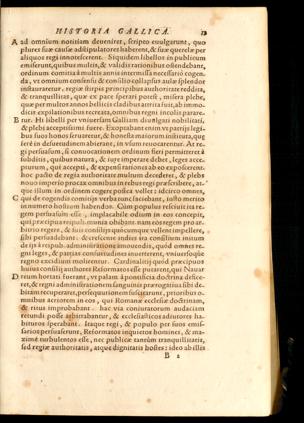 HISTORIA GALLICA. 
A ad omnium notitiam deveniret, scripto evulgarunt, quo
plures suæ causæ adstipulatores haberent, & suæ querelæ per
aliquos regi innotescerent. Siquidem libellos in publicum
emiserunt, quibus multis, & validis rationibus ostendebant,
ordinum comitia à multis annis intermissa necessariò cogen
da, vt omnium consensu & consilio collapsus aulæ splendor
instauraretur, regiæ stirpis principibus authoritate reddita,
& tranquillitati, quæ ex pace sperari potest, misera plebe,
quæ per multos annos bellicis cladibus attrita fuit, ab immo-
dicis expilationibus recreata, omnibus regni incolis parare-
B tur. Hi libelli per vniuersam Galliam
& plebi acceptissimi fuere. Exoptabant enim vt patrijs legi-
bus suus honos seruaretur, & honesta maiorum instituta, quæ
ferè in desuetudinem abierant, in vsum reuocarentur. At re-
gi persuasum, si conuocationem ordinum fieri permitteret à
subditis, quibus natura, & iure imperare debet, leges acce-
pturum, qui accepti, & expensi rationes ab eo exposcerent.
hoc pacto de regia authoritate multum decedere, & plebis
nouo imperio procax omnibus in rebus regi præscribere, at-
que illum in ordinem cogere posica velles: idcirco omnes,
C qui de cogendis comitijs verba tunc faciebant, iusto merito
in numero hostium habendos. Cùm populus resciuit ita re-
gem persuasum esse, implacabile odium in eos concepit,
qui præcipua reipub. munia obibant. nam eos regem pro ar-
bitrio regere, & suis consilijs quòcumque vellent impellere,
sibi persuadebant: &
de ijs à reipub. administratione amouendis, quòd omnes re-
gni leges, & patrias consuetudines inuerterent, vniuersoque
regno excidium molirentur. Cardinalis quid præcipuos
huius consilij authores Reformatos esse putarent, qui Nauar
D renum hortati fuerant, vt palam à pontificia doctrina desisce-
ret, & regni administrationem sanguinis prærogatiua sibi de-
bitam recuperaret, persequutionem susciţarunt, prioribus o-
mnibus acriorem in eos, qui Romanæ ecclesiæ doctrinam,
& ritus improbabant. hac via coniuratorum audaciam
retundi posse arbitrabantur, & ecclesiasticos adiutores ha-
bituros sperabant. Itaque regi, & populo per suos emis-
sarios persuaserunt, Reformatos inquietos homines, & ma-
ximè turbulentos esse, nec publicæ tantùm tranquillitatis,
sed regiæ authoritatis, atque dignitatis hostes: ideo ab illis
B 2